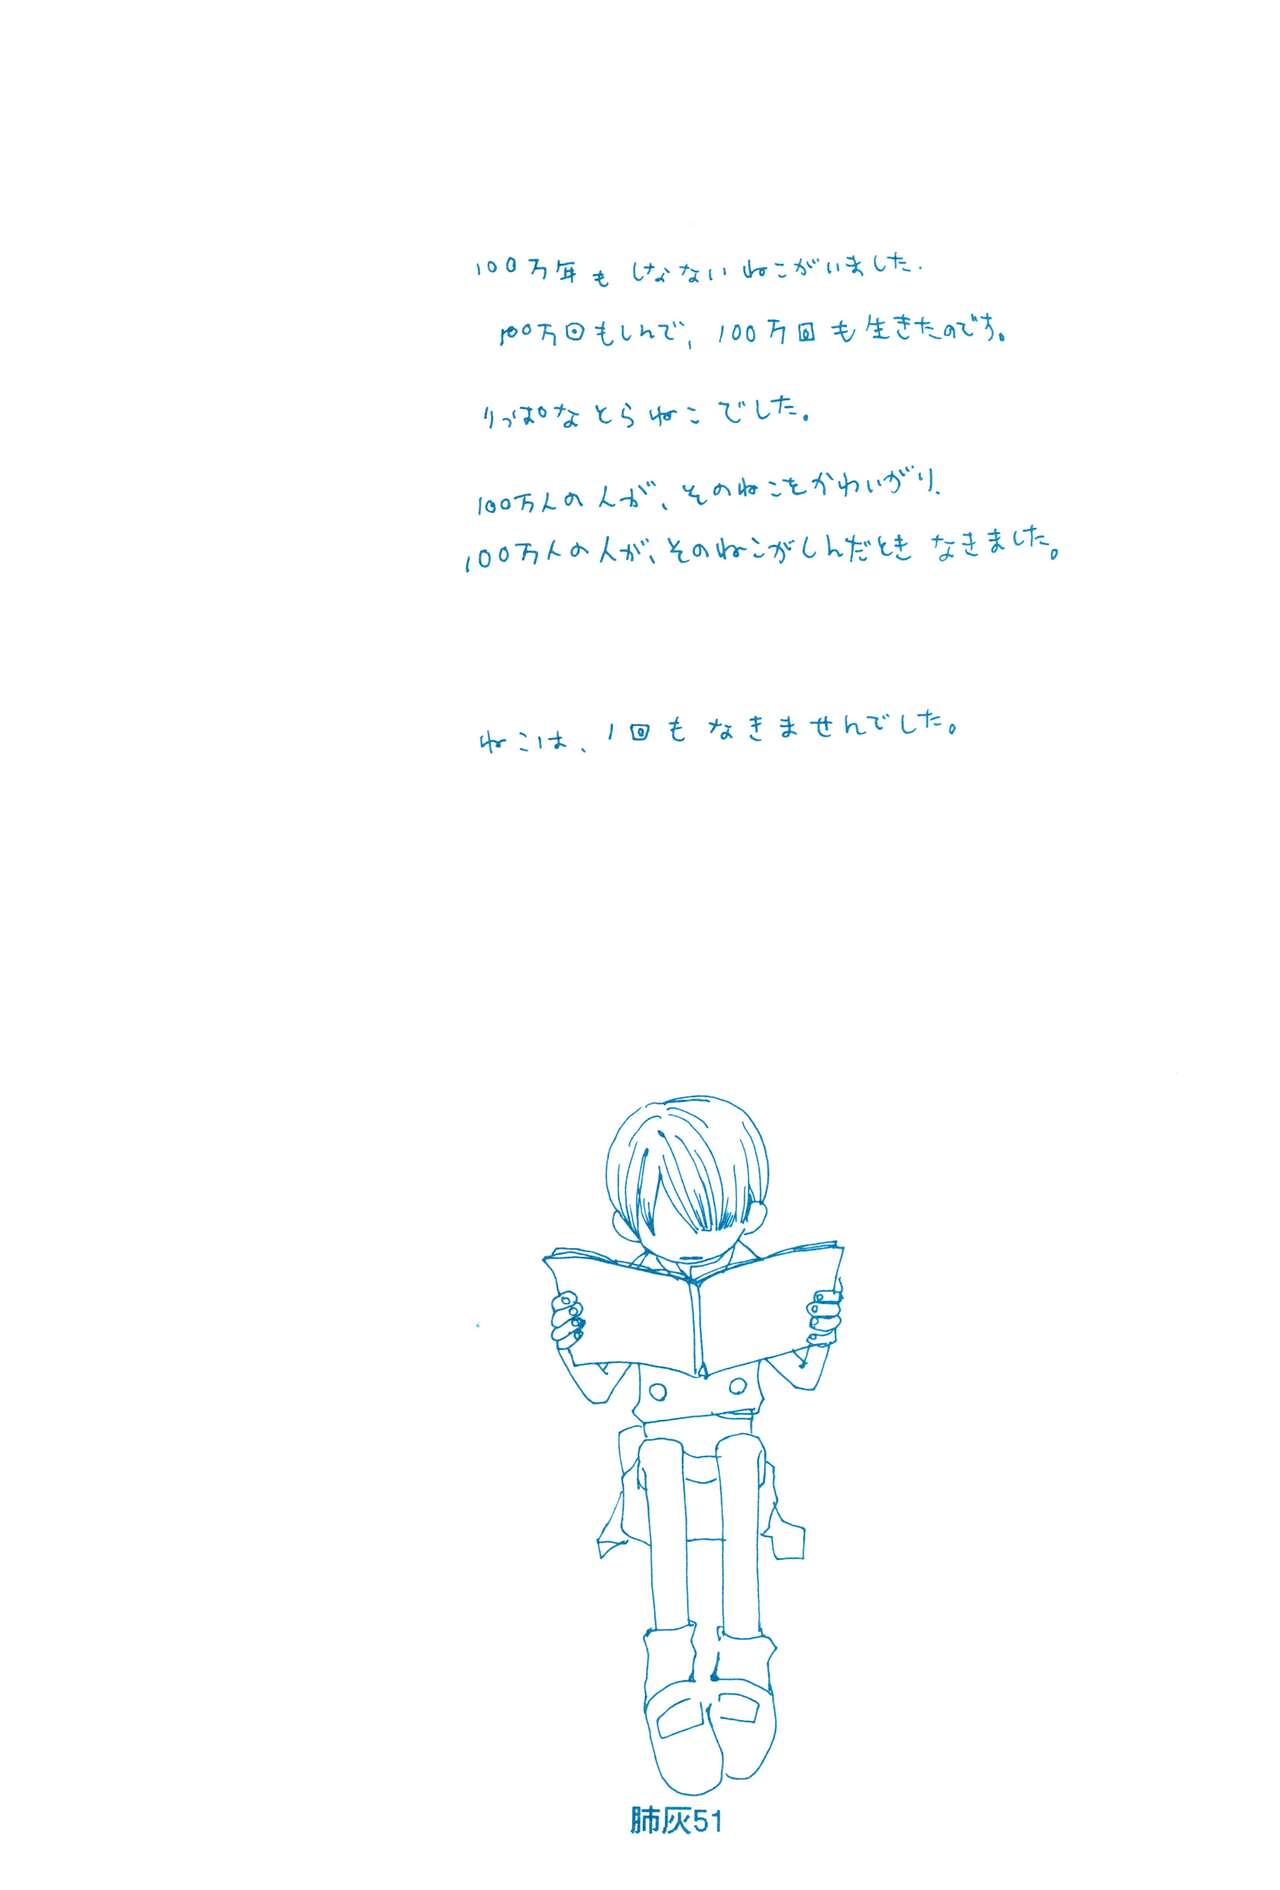 100万年も しなない ねこがいました.
100万回もしんで、100万回も生きたのです。
りっぱなとらねこでした。
100万人の人が、そのねこをかわいがり、
100万人の人が、そのねこがしんだとき なきました。
ねこは、1回もなきませんでした。
肺灰51